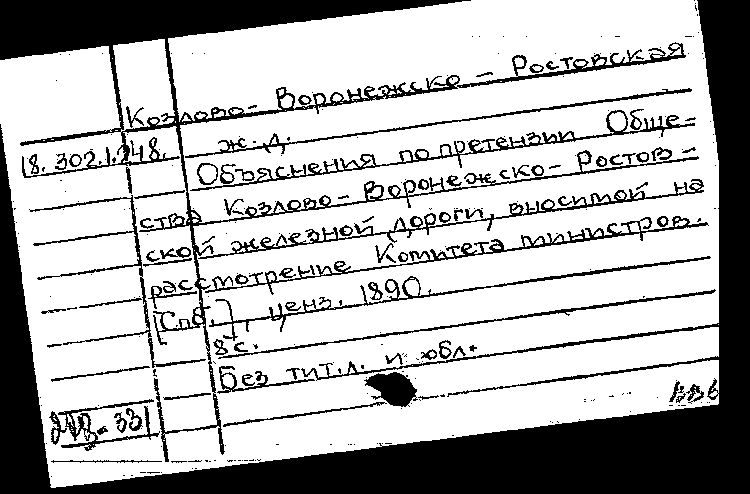 Козлово-Воронежско-Ростовская
ж.д.
18.302.1.248.
Объяснения по претензии Обще=
ства Козлово-Воронежско-Ростов-
ской железной дороги, вносимой на
рассмотрение Комитета министров.
[Спб.], ценз. 1890.
8 с.
Без тит.л. и обл.
-331